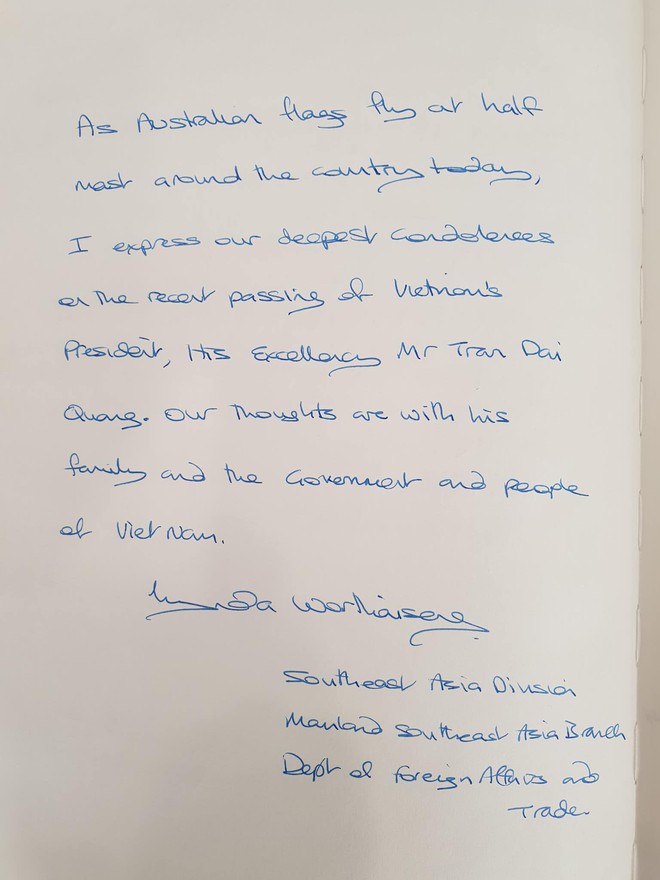 As Australian flags fly at half
mast around the country today,
I express our deepest condolences
on the recent passing of Vietnam's
President, His Excellency Mr Tran Dai
Quang. Our thoughts are with his
family and the Government and people
of Viet Nam.
Southeast Asia Division
Mainland Southeast Asia Branch
Dept of Foreign Affairs and
Trade.